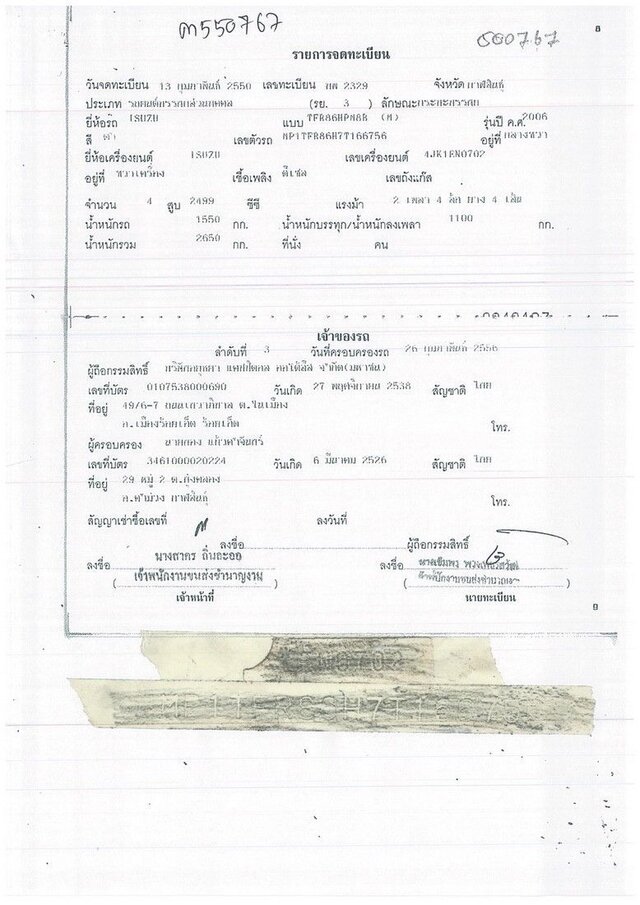 ต550767
000767
8
รายการจดทะเบียน
วันจดทะเบียน 13 กุมภาพันธ์ 2550 เลขทะเบียน 2329 จังหวัด กาฬสินธุ์
ประเภท รถยนต์บรรทุกส่วนบุคคล (รย. 3 ) ลักษณะกระบะบรรทุก
ยี่ห้อรถ ISUZU แบบ TFR86HPM8B (M) รุ่นปี ค.ศ. 2006
สี ดำ เลขตัวรถ MP1TFR86H7T166756 อยู่ที่ กลางขวา
ยี่ห้อเครื่องยนต์ ISUZU เลขเครื่องยนต์ 4JK1EN0702
อยู่ที่ ขวาเครื่อง เชื้อเพลิง ดีเซล เลขถังแก๊ส
จำนวน 4 สูบ 2499 ซีซี แรงม้า 2 เพลา 4 ล้อ ยาง 4 เส้น
น้ำหนักรถ 1550 กก. น้ำหนักบรรทุก/น้ำหนักลงเพลา 1100 กก.
น้ำหนักรวม 2650 กก. ที่นั่ง คน
เจ้าของรถ
ลำดับที่ 3 วันที่ครอบครองรถ 26 กุมภาพันธ์ 2556
ผู้ถือกรรมสิทธิ์ บริษัทอยุธยา แคปปิตอล ออโต้ลีส จำกัด(มหาชน)
เลขที่บัตร 0107538000690 วันเกิด 27 พฤศจิกายน 2538 สัญชาติ ไทย
ที่อยู่ 49/6-7 ถนนเทวาภิบาล ต.ในเมือง
อ.เมืองร้อยเอ็ด ร้อยเอ็ด โทร.
ผู้ครอบครอง นายทอง
เลขที่บัตร 3461000020224 วันเกิด 6 มีนาคม 2526 สัญชาติ ไทย
ที่อยู่ 29 หมู่ 2 ต.ทุ่งคลอง
อ.คำม่วง กาฬสินธุ์ โทร.
สัญญาเช่าซื้อเลขที่ ลงวันที่
ลงชื่อ ผู้ถือกรรมสิทธิ์
ลงชื่อ นางสาคร ลงชื่อ
( เจ้าพนักงานขนส่งชำนาญงาน ) ( เจ้าพนักงานขนส่งชำนาญงาน )
เจ้าหน้าที่ นายทะเบียน